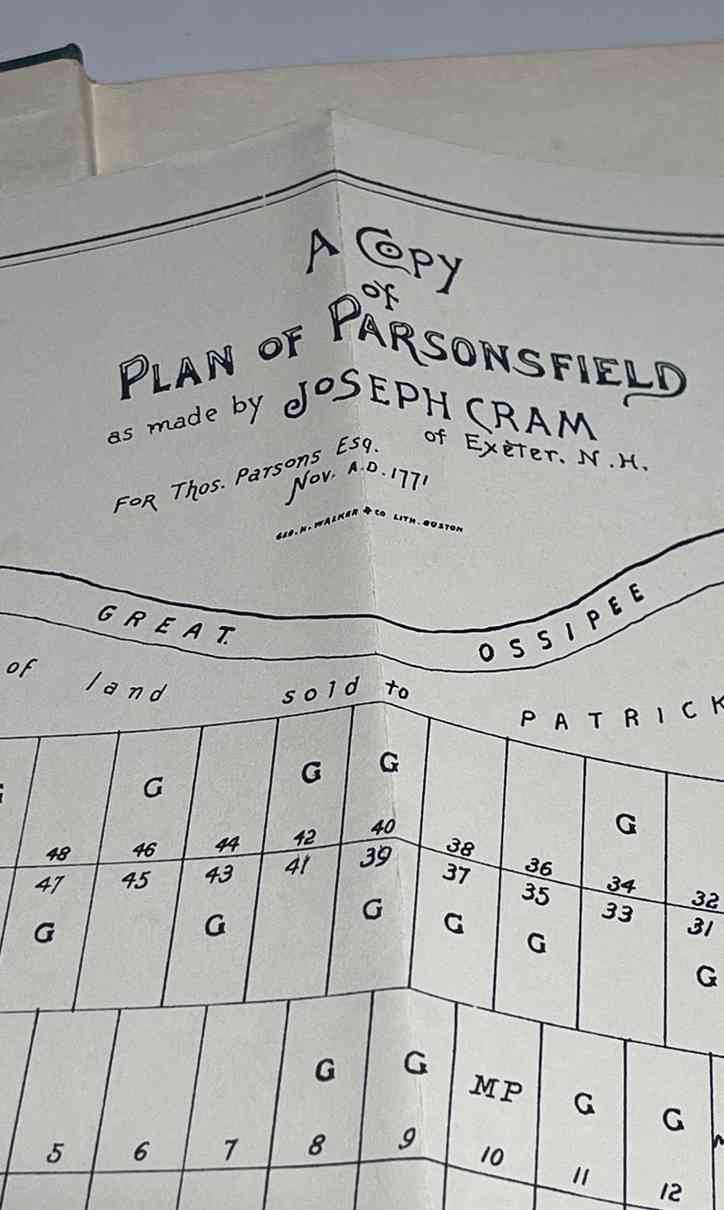 A COPY
of
PLAN OF PARSONSFIELD
as made by JOSEPH CRAM
of Exeter. N.H.
FOR Thos. Parsons Esq.
Nov. A.D. 1771
GEO. H. WALKER & CO LITH. BOSTON
GREAT. OSSIPEE
of land sold to PATRICK
G G G G
48 46 44 42 40 38 36 34 32
47 45 43 41 39 37 35 33 31
G G G G G G
G G MP G G
5 6 7 8 9 10 11 12